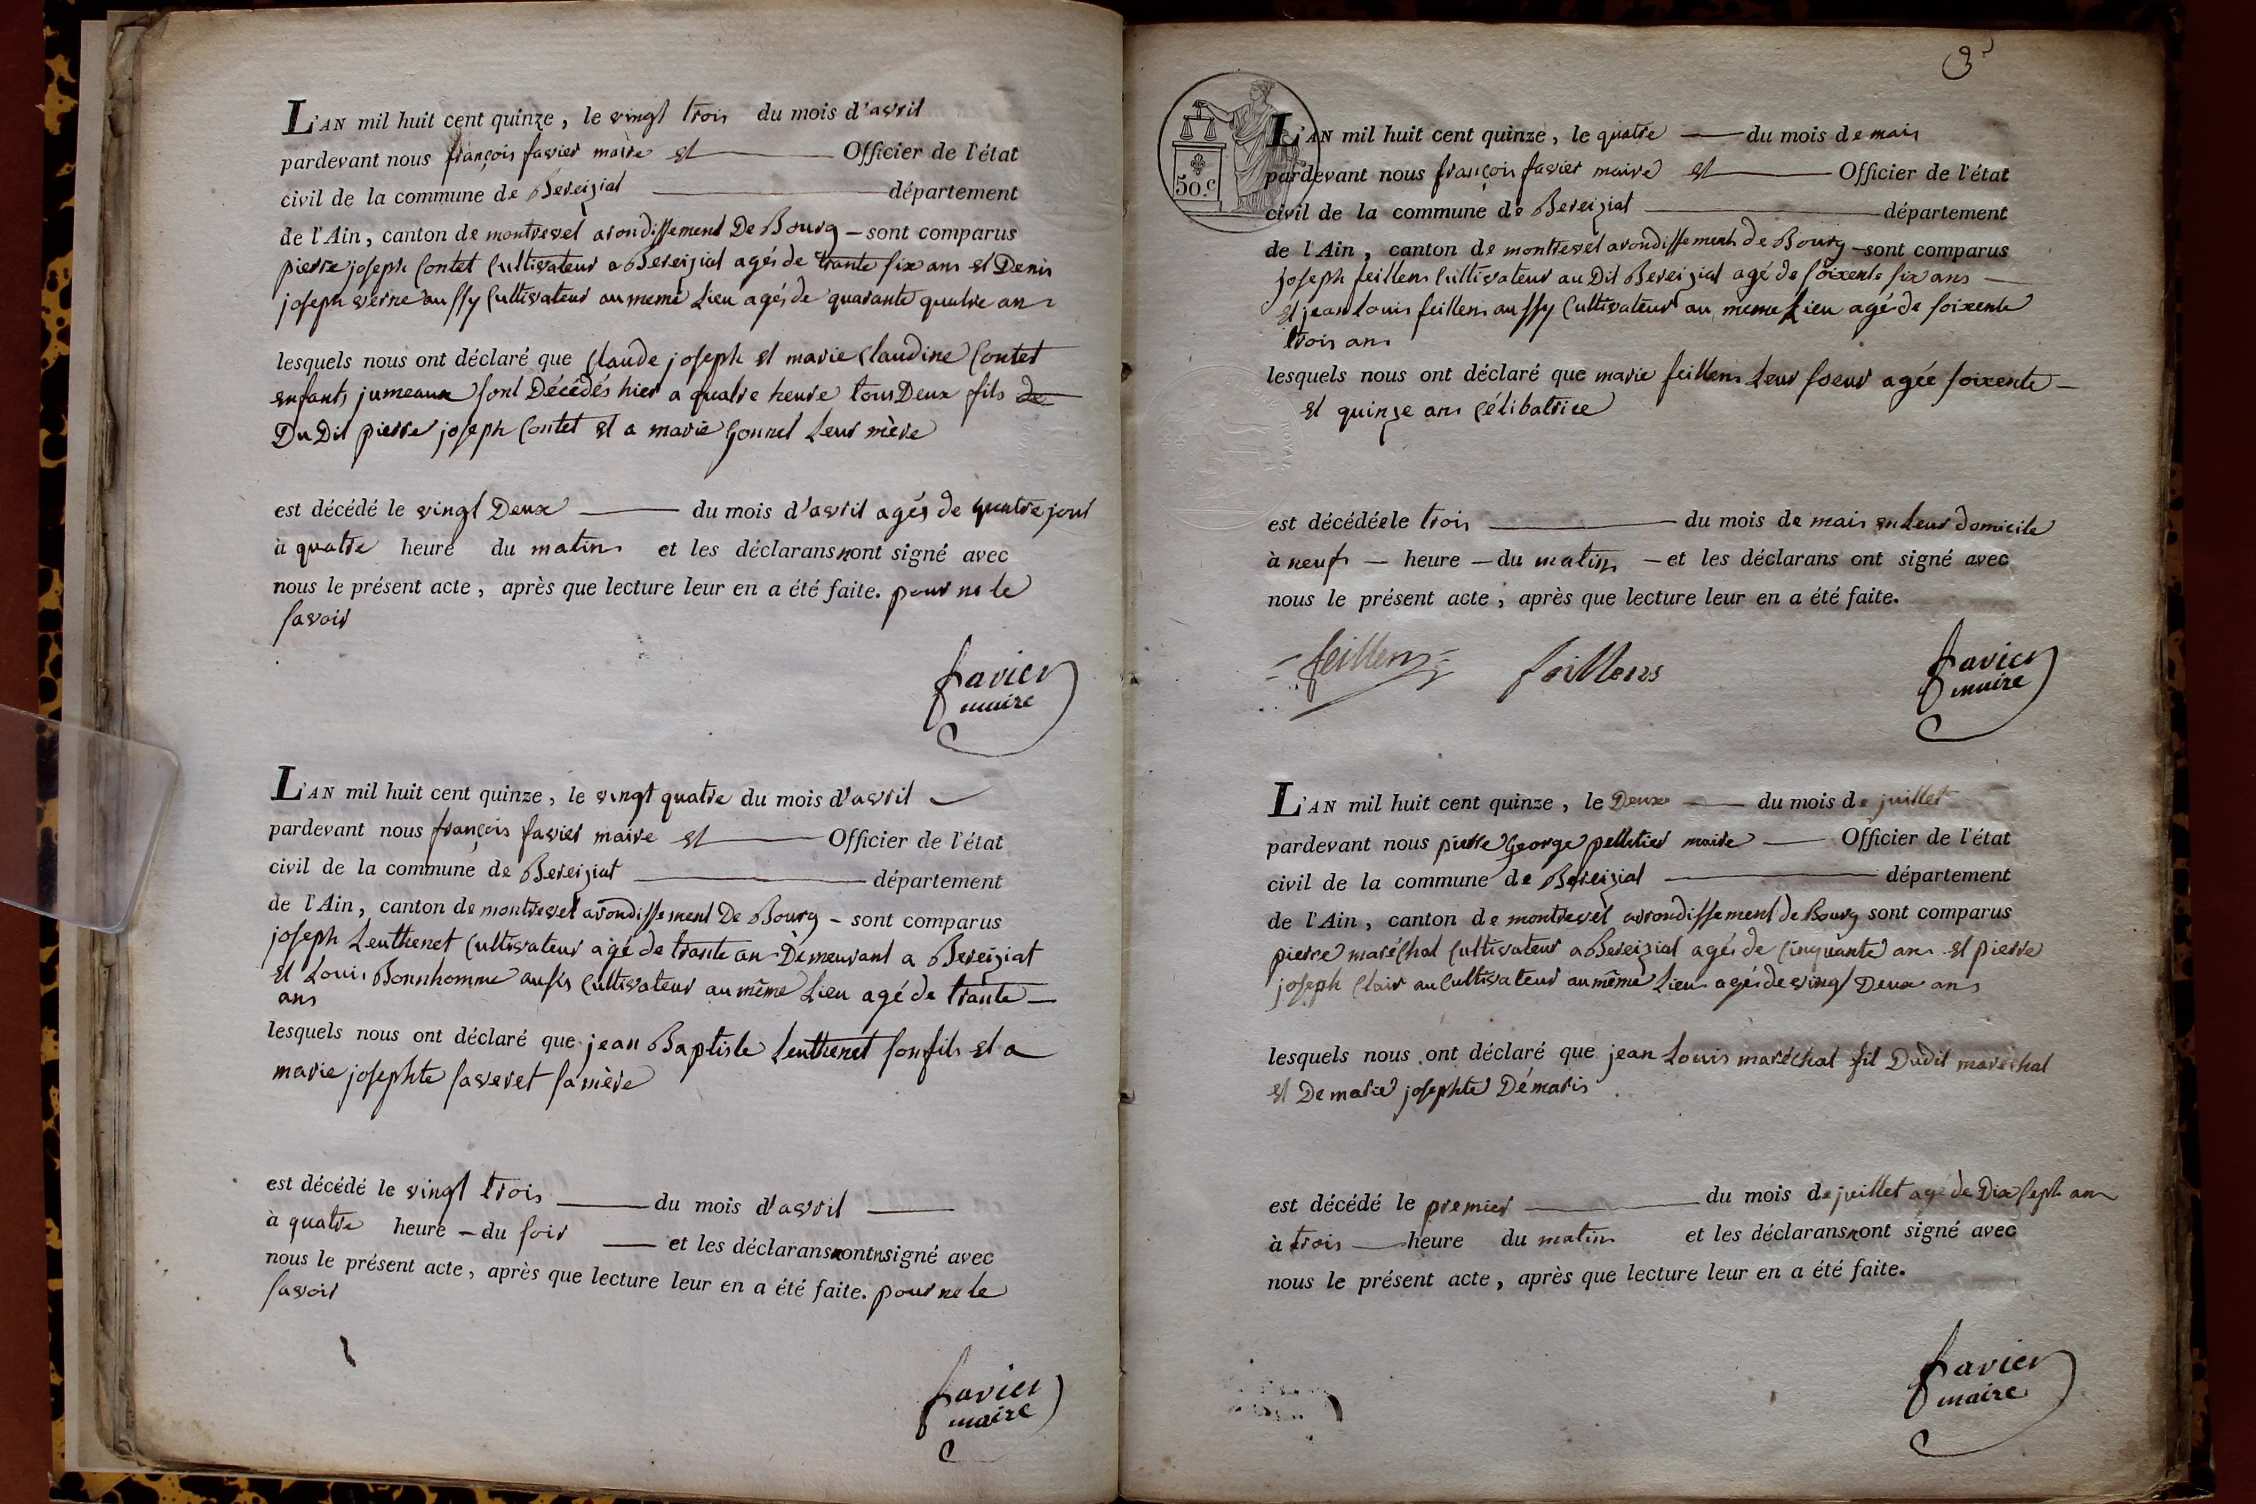 L'AN mil huit cent quinze, le vingt trois du mois d'avril
pardevant nous françois favier maire et Officier de l'état
civil de la commune de Bereiziat département
de l'Ain, canton de montrevel arondissement De Bourg - sont comparus
pierre joseph Contet Cultivateur a Bereiziat agés de trante six ans et Denis
joseph verne aussy Cultivateur au meme Lieu agés de quarante quatre ans
lesquels nous ont déclaré que Claude joseph et marie Claudine Contet
enfants jumeaux sont Décédés hier a quatre heure tous Deux fils de
Du Dit pierre joseph Contet et a marie Gonnet Leur mère
est décédé le vingt Deux du mois d'avril agés de quatre jour
à quatre heure du matin et les déclarans nont signé avec
nous le présent acte, après que lecture leur en a été faite. pour ne le
savoir
favier
maire
L'AN mil huit cent quinze, le vingt quatre du mois d'avril
pardevant nous françois favier maire et Officier de l'état
civil de la commune de Bereiziat département
de l'Ain, canton de montrevel arondissement De Bourg - sont comparus
joseph Leuthenet Cultivateur agé de trante an Demeurant a Bereiziat
et Louis Bonnhomme Cultivateur au même Lieu agé de trante
ans
lesquels nous ont déclaré que jean Baptiste Leuthenet son fils et a
marie josephte faveret sa mère
est décédé le vingt trois du mois d'avril
à quatre heure - du soir et les déclarans nont signé avec
nous le présent acte, après que lecture leur en a été faite. pour ne le
savoir
favier
maire
3
50.c
L'AN mil huit cent quinze, le quatre du mois de mais
pardevant nous françois favier maire et Officier de l'état
civil de la commune de Bereiziat département
de l'Ain, canton de montrevel arondissement de Bourg - sont comparus
joseph feillens Cultivateur au Dit Bereiziat agé de soixente six ans
et jean Louis feillens aussy Cultivateur au meme Lieu agé de soixente
trois ans
lesquels nous ont déclaré que marie feillens Leur soeur agée soixente
et quinze ans célibatrice
est décédée le trois du mois de mais en Leur domicile
à neufs - heure - du matin - et les déclarans ont signé avec
nous le présent acte, après que lecture leur en a été faite.
feillens feillens favier
maire
L'AN mil huit cent quinze, le Deux du mois de juillet
pardevant nous pierre George pelletier maire Officier de l'état
civil de la commune de Bereiziat département
de l'Ain, canton de montrevel arrondissement de Bourg sont comparus
pierre maréchal Cultivateur a Bereiziat agés de Cinquante ans et pierre
joseph Clair Cultivateur au même Lieu agés de vingt Deux ans
lesquels nous ont déclaré que jean Louis maréchal fil Dudit maréchal
et De marie josephte Démaris
est décédé le premier du mois de juillet agé de Dix sept ans
à trois heure du matin et les déclarans nont signé avec
nous le présent acte, après que lecture leur en a été faite.
favier
maire